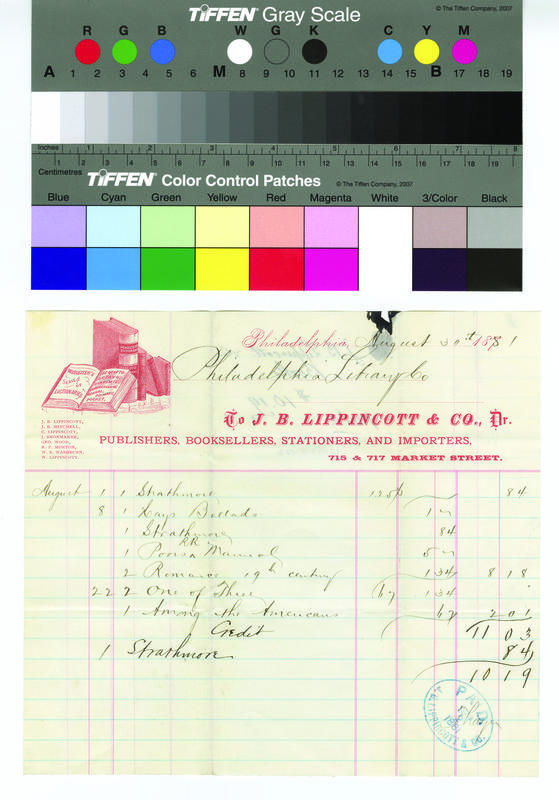 TIFFEN® Gray Scale
© The Tiffen Company, 2007
R G B W G K C Y M
A 1 2 3 4 5 6 M 8 9 10 11 12 13 14 15 B 17 18 19
Inches 1 2 3 4 5 6 7 8
Centimetres 1 2 3 4 5 6 7 8 9 10 11 12 13 14 15 16 17 18 19
TIFFEN® Color Control Patches
© The Tiffen Company, 2007
Blue Cyan Green Yellow Red Magenta White 3/Color Black
Philadelphia, August 30th 1881
Philadelphia Library Co
To J. B. LIPPINCOTT & CO., Dr.
PUBLISHERS, BOOKSELLERS, STATIONERS, AND IMPORTERS,
715 & 717 MARKET STREET.
J. B. LIPPINCOTT,
J. B. MITCHELL,
C. LIPPINCOTT,
J. SHOEMAKER,
GEO. WOOD,
W. LIPPINCOTT.
August 1 1 Strathmore 84
8 1 Hays Ballads
1 Strathmore 84
1 Poors RR Manual
2 Romance 19th century 134 818
22 2 One of Three 67 134
1 Among the Americans 67 201
Credit 1103
1 Strathmore 84
1019
PAID
1881